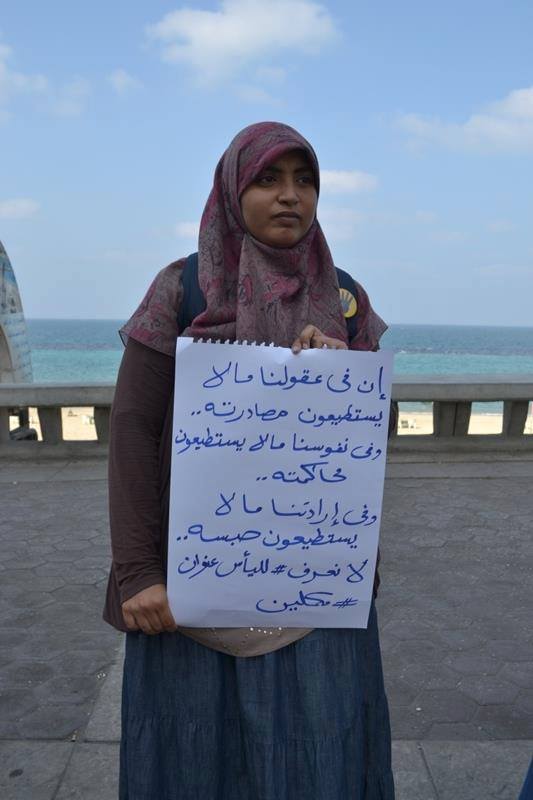 إن فى عقولنا مالا
يستطيعون مصادرته..
وفى نفوسنا مالا يستطيعون
محاكمته..
وفى إرادتنا مالا
يستطيعون حبسه..
لا نعرف #لليأس عنوان
#مكملين